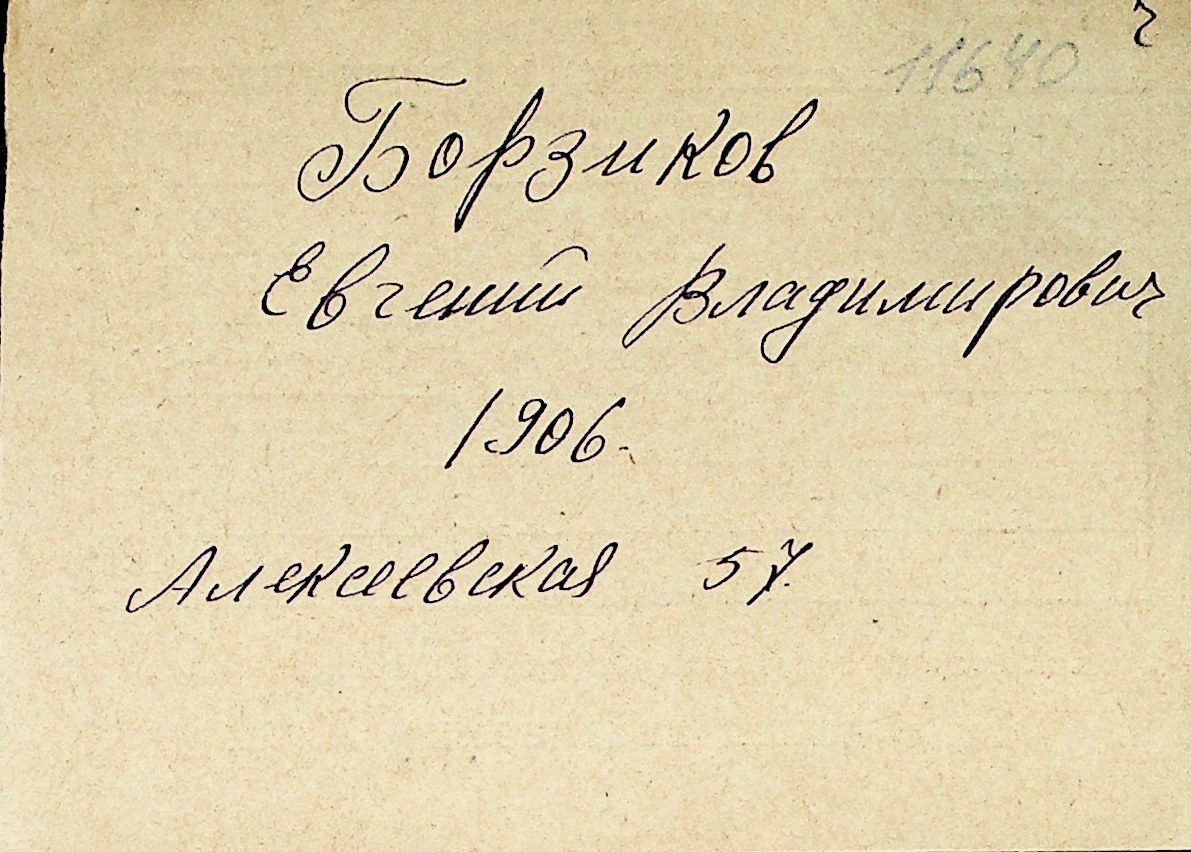 ч
11640
Борзиков
Евгений Владимирович
1906.
Алексеевская 57.